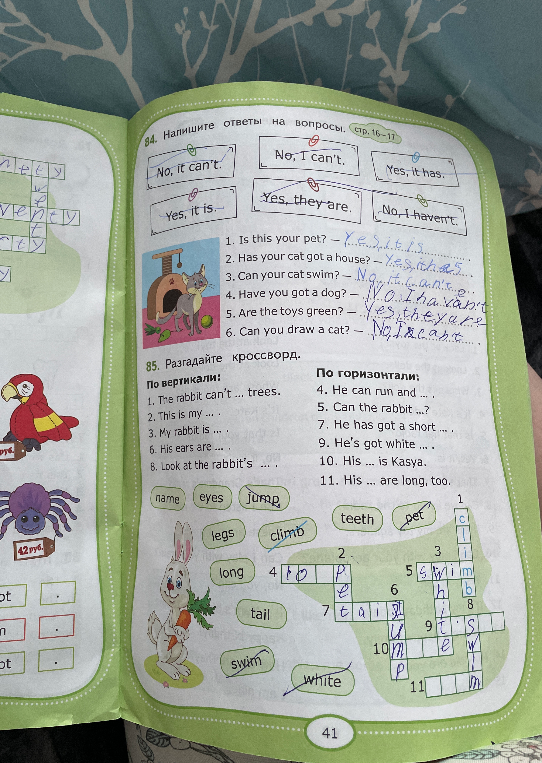 84. Напишите ответы на вопросы. стр. 16–17
No, it can't.
No, I can't.
Yes, it has.
Yes, it is.
Yes, they are.
No, I haven't.
1. Is this your pet? – Yes it is
2. Has your cat got a house? – Yes, thas
3. Can your cat swim? – No, it can't
4. Have you got a dog? – No I havan't
5. Are the toys green? – Yes, they are
6. Can you draw a cat? – No, I can't
85. Разгадайте кроссворд.
По вертикали:
1. The rabbit can't ... trees.
2. This is my ... .
3. My rabbit is ... .
6. His ears are ... .
8. Look at the rabbit's ... .
По горизонтали:
4. He can run and ... .
5. Can the rabbit ...?
7. He has got a short ... .
9. He's got white ... .
10. His ... is Kasya.
11. His ... are long, too.
name eyes jump
legs climb teeth pet
long
tail
swim
white
1
2
3
4
5 swim
6
7 tail
8
9
10
11
climb
pet
white
swim
42 руб.
руб.
41